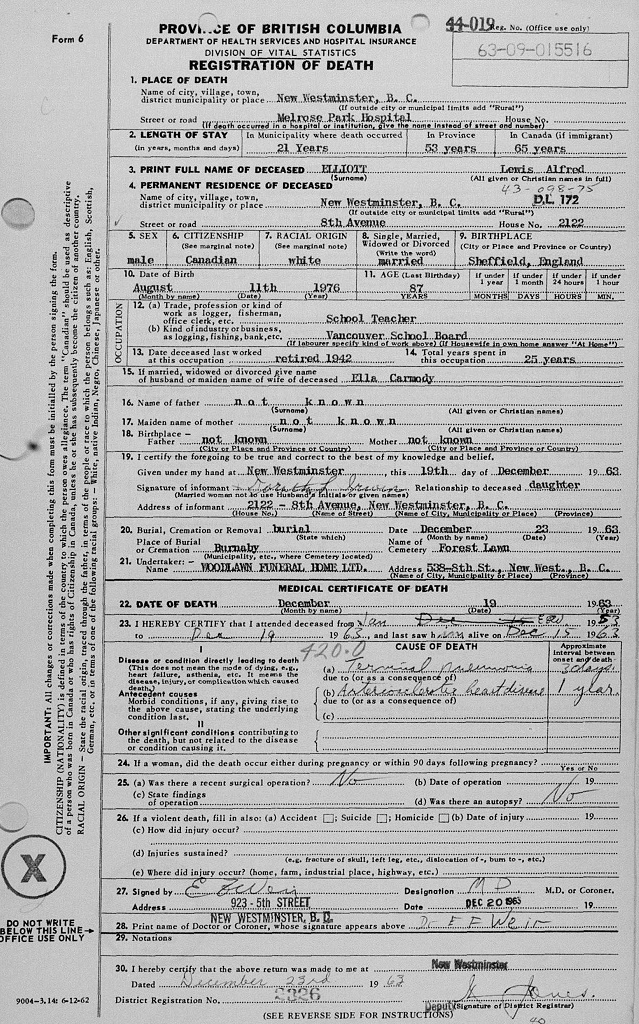 Form 6
PROVINCE OF BRITISH COLUMBIA
DEPARTMENT OF HEALTH SERVICES AND HOSPITAL INSURANCE
DIVISION OF VITAL STATISTICS
REGISTRATION OF DEATH
44-019 Reg. No. (Office use only)
63-09-015516
1. PLACE OF DEATH
Name of city, village, town, district municipality or place New Westminster, B. C.
(If outside city or municipal limits add "Rural")
Street or road Melrose Park Hospital House No.
(If death occurred in a hospital or institution, give the name instead of street and number)
2. LENGTH OF STAY In Municipality where death occurred In Province In Canada (if immigrant)
(in years, months and days) 21 Years 53 years 65 years
3. PRINT FULL NAME OF DECEASED ELLIOTT Lewis Alfred
(Surname) (All given or Christian names in full)
4. PERMANENT RESIDENCE OF DECEASED 43-098-75
Name of city, village, town, district municipality or place New Westminster, B. C. D.L. 172
(If outside city or municipal limits add "Rural")
Street or road 8th Avenue House No. 2122
5. SEX 6. CITIZENSHIP 7. RACIAL ORIGIN 8. Single, Married, Widowed or Divorced 9. BIRTHPLACE
(See marginal note) (See marginal note) (Write the word) (City or Place and Province or Country)
male Canadian white married Sheffield, England
10. Date of Birth 11. AGE (Last Birthday) If under 1 year If under 1 month If under 24 hours If under 1 hour
August 11th 1976 87
(Month by name) (Date) (Year) YEARS MONTHS DAYS HOURS MIN.
OCCUPATION
12. (a) Trade, profession or kind of work as logger, fisherman, office clerk, etc. School Teacher
(b) Kind of industry or business, as logging, fishing, bank, etc. Vancouver School Board
(If labourer specify kind of work above) (If Housewife in own home answer "At Home")
13. Date deceased last worked at this occupation retired 1942 14. Total years spent in this occupation 25 years
15. If married, widowed or divorced give name of husband or maiden name of wife of deceased Ella Carmody
16. Name of father not known
(Surname) (All given or Christian names)
17. Maiden name of mother not known
(Surname) (All given or Christian names)
18. Birthplace - Father not known Mother not known
(City or Place and Province or Country) (City or Place and Province or Country)
19. I certify the foregoing to be true and correct to the best of my knowledge and belief.
Given under my hand at New Westminster, this 19th day of December 1963
Signature of informant Relationship to deceased daughter
(Married woman not to use Husband's initials or given names)
Address of informant 2122 - 8th Avenue, New Westminster, B. C.
(House No.) (Name of Street) (Name of City, Municipality or Place) (Province)
20. Burial, Cremation or Removal burial Date December 23 1963
(State which) (Month by name) (Date) (Year)
Place of Burial or Cremation Burnaby Name of Cemetery Forest Lawn
(Municipality, etc., where Cemetery located)
21. Undertaker:- Name WOODLAWN FUNERAL HOME LTD. Address 538-8th St., New West., B. C.
(Name of City, Municipality or Place) (Province)
MEDICAL CERTIFICATE OF DEATH
22. DATE OF DEATH December 19 1963
(Month by name) (Date) (Year)
23. I HEREBY CERTIFY that I attended deceased from Jan 1953
to Dec 19 1963, and last saw him alive on Dec 15 1963
420.0
I CAUSE OF DEATH Approximate interval between onset and death
Disease or condition directly leading to death
(This does not mean the mode of dying, e.g., heart failure, asthenia, etc. It means the disease, injury, or complication which caused death).
(a) Terminal pneumonia 3 days
due to (or as a consequence of)
Antecedent causes
Morbid conditions, if any, giving rise to the above cause, stating the underlying condition last.
(b) Arteriosclerotic heart disease 1 year
due to (or as a consequence of)
(c)
II
Other significant conditions contributing to the death, but not related to the disease or condition causing it.
24. If a woman, did the death occur either during pregnancy or within 90 days following pregnancy?
Yes or No
25. (a) Was there a recent surgical operation? No (b) Date of operation 19
(c) State findings of operation (d) Was there an autopsy? No
26. If a violent death, fill in also: (a) Accident ; Suicide ; Homicide (b) Date of injury 19
(c) How did injury occur?
(d) Injuries sustained?
(e.g., fracture of skull, left leg, etc., dislocation of-, burn to-, etc.)
(e) Where did injury occur? (home, farm, industrial place, highway, etc.)
27. Signed by E F Weir Designation M D M.D. or Coroner.
Address 923 - 5th STREET Date DEC 20 1963 19
NEW WESTMINSTER, B. C.
28. Print name of Doctor or Coroner, whose signature appears above Dr E F Weir
29. Notations
30. I hereby certify that the above return was made to me at New Westminster
Dated December 23rd 1963
District Registration No. 2326 Deputy (Signature of District Registrar)
(SEE REVERSE SIDE FOR INSTRUCTIONS)
IMPORTANT: All changes or corrections made when completing this form must be initialled by the person signing the form.
CITIZENSHIP (NATIONALITY) is defined in terms of the country to which the person owes allegiance. The term "Canadian" should be used as descriptive of a person who was born in Canada or who has rights of Citizenship in Canada, unless he or she has subsequently become the citizen of another country.
RACIAL ORIGIN - State the racial origin, traced through the father, in terms of the people or race to which the person belongs such as: English, Scottish, German, etc. or in terms of one of the following racial groups: - White, native Indian, Negro, Chinese, Japanese or other.
X
DO NOT WRITE
BELOW THIS LINE
OFFICE USE ONLY
9004-3.14: 6-12-62